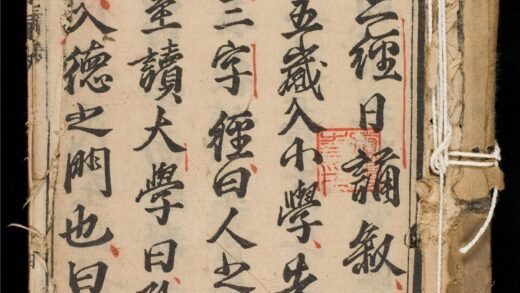 經日誦叙
五歲入小學
三字經曰人之
至讀大學曰
入德之門也曰